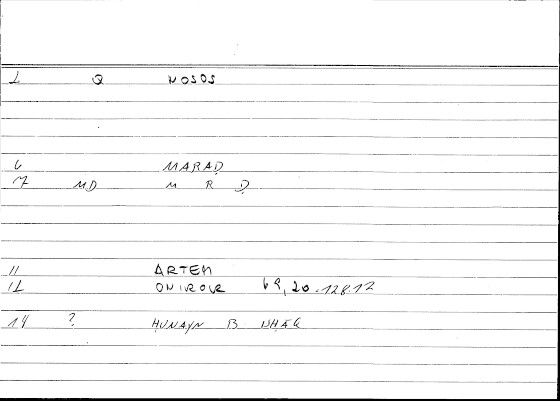 1 Q NOSOS
6 MARAḌ
7 MD M R Ḍ
11 ARTEM
12 ONIROKR 69,20.128 12
14 ? ḤUNAYN B ISḤĀQ